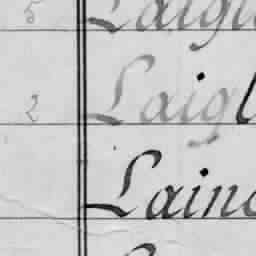 5 Laigl
2 Laigl
Lainc